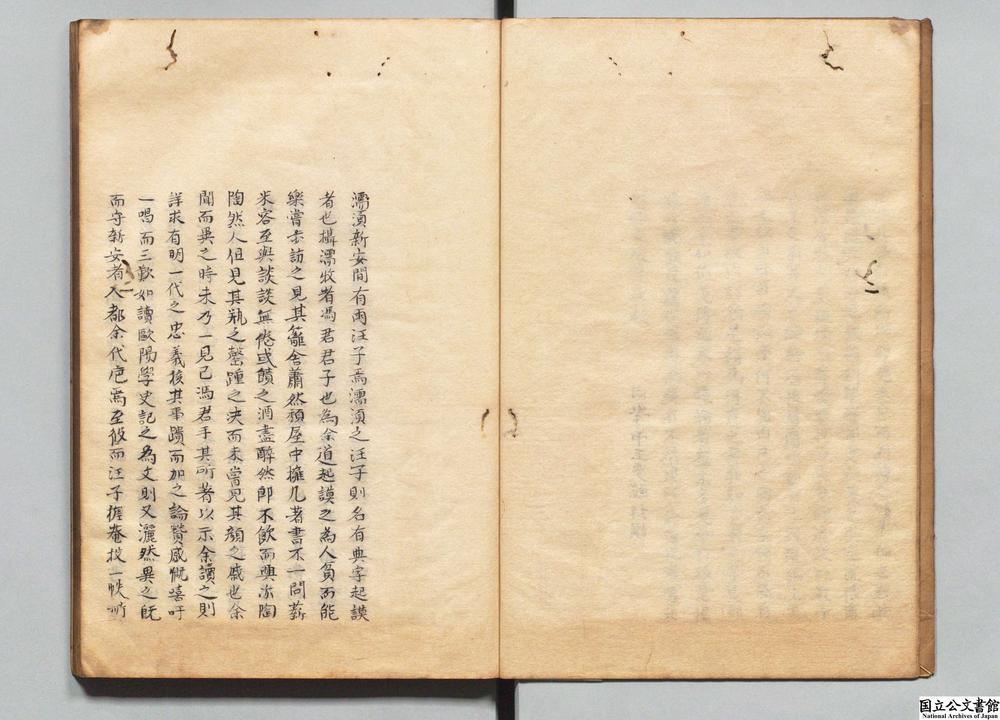 濡湏新安間有兩汪子焉濡湏之汪子則名有典字起謨
者也攝濡牧者馮君君子也為余道起謨之為人貧而能
樂嘗步訪之見其籬舍蕭然頹屋中擁几著書不一問薪
米客至與談談無倦或饋之酒盡醉然即不飲而興亦陶
陶然人但見其瓶之罄踵之决而未嘗見其顔之戚也余
聞而異之時未乃一見已馮君手其所著以示余讀之則
詳求有明一代之忠義按其事蹟而加之論贊感慨嘻吁
一唱而三歎如讀歐陽學史記之為文則又灑然異之既
而守新安者入都余代庖焉至攸而汪子握菴投一帙所
国立公文書館
National Archives of Japan